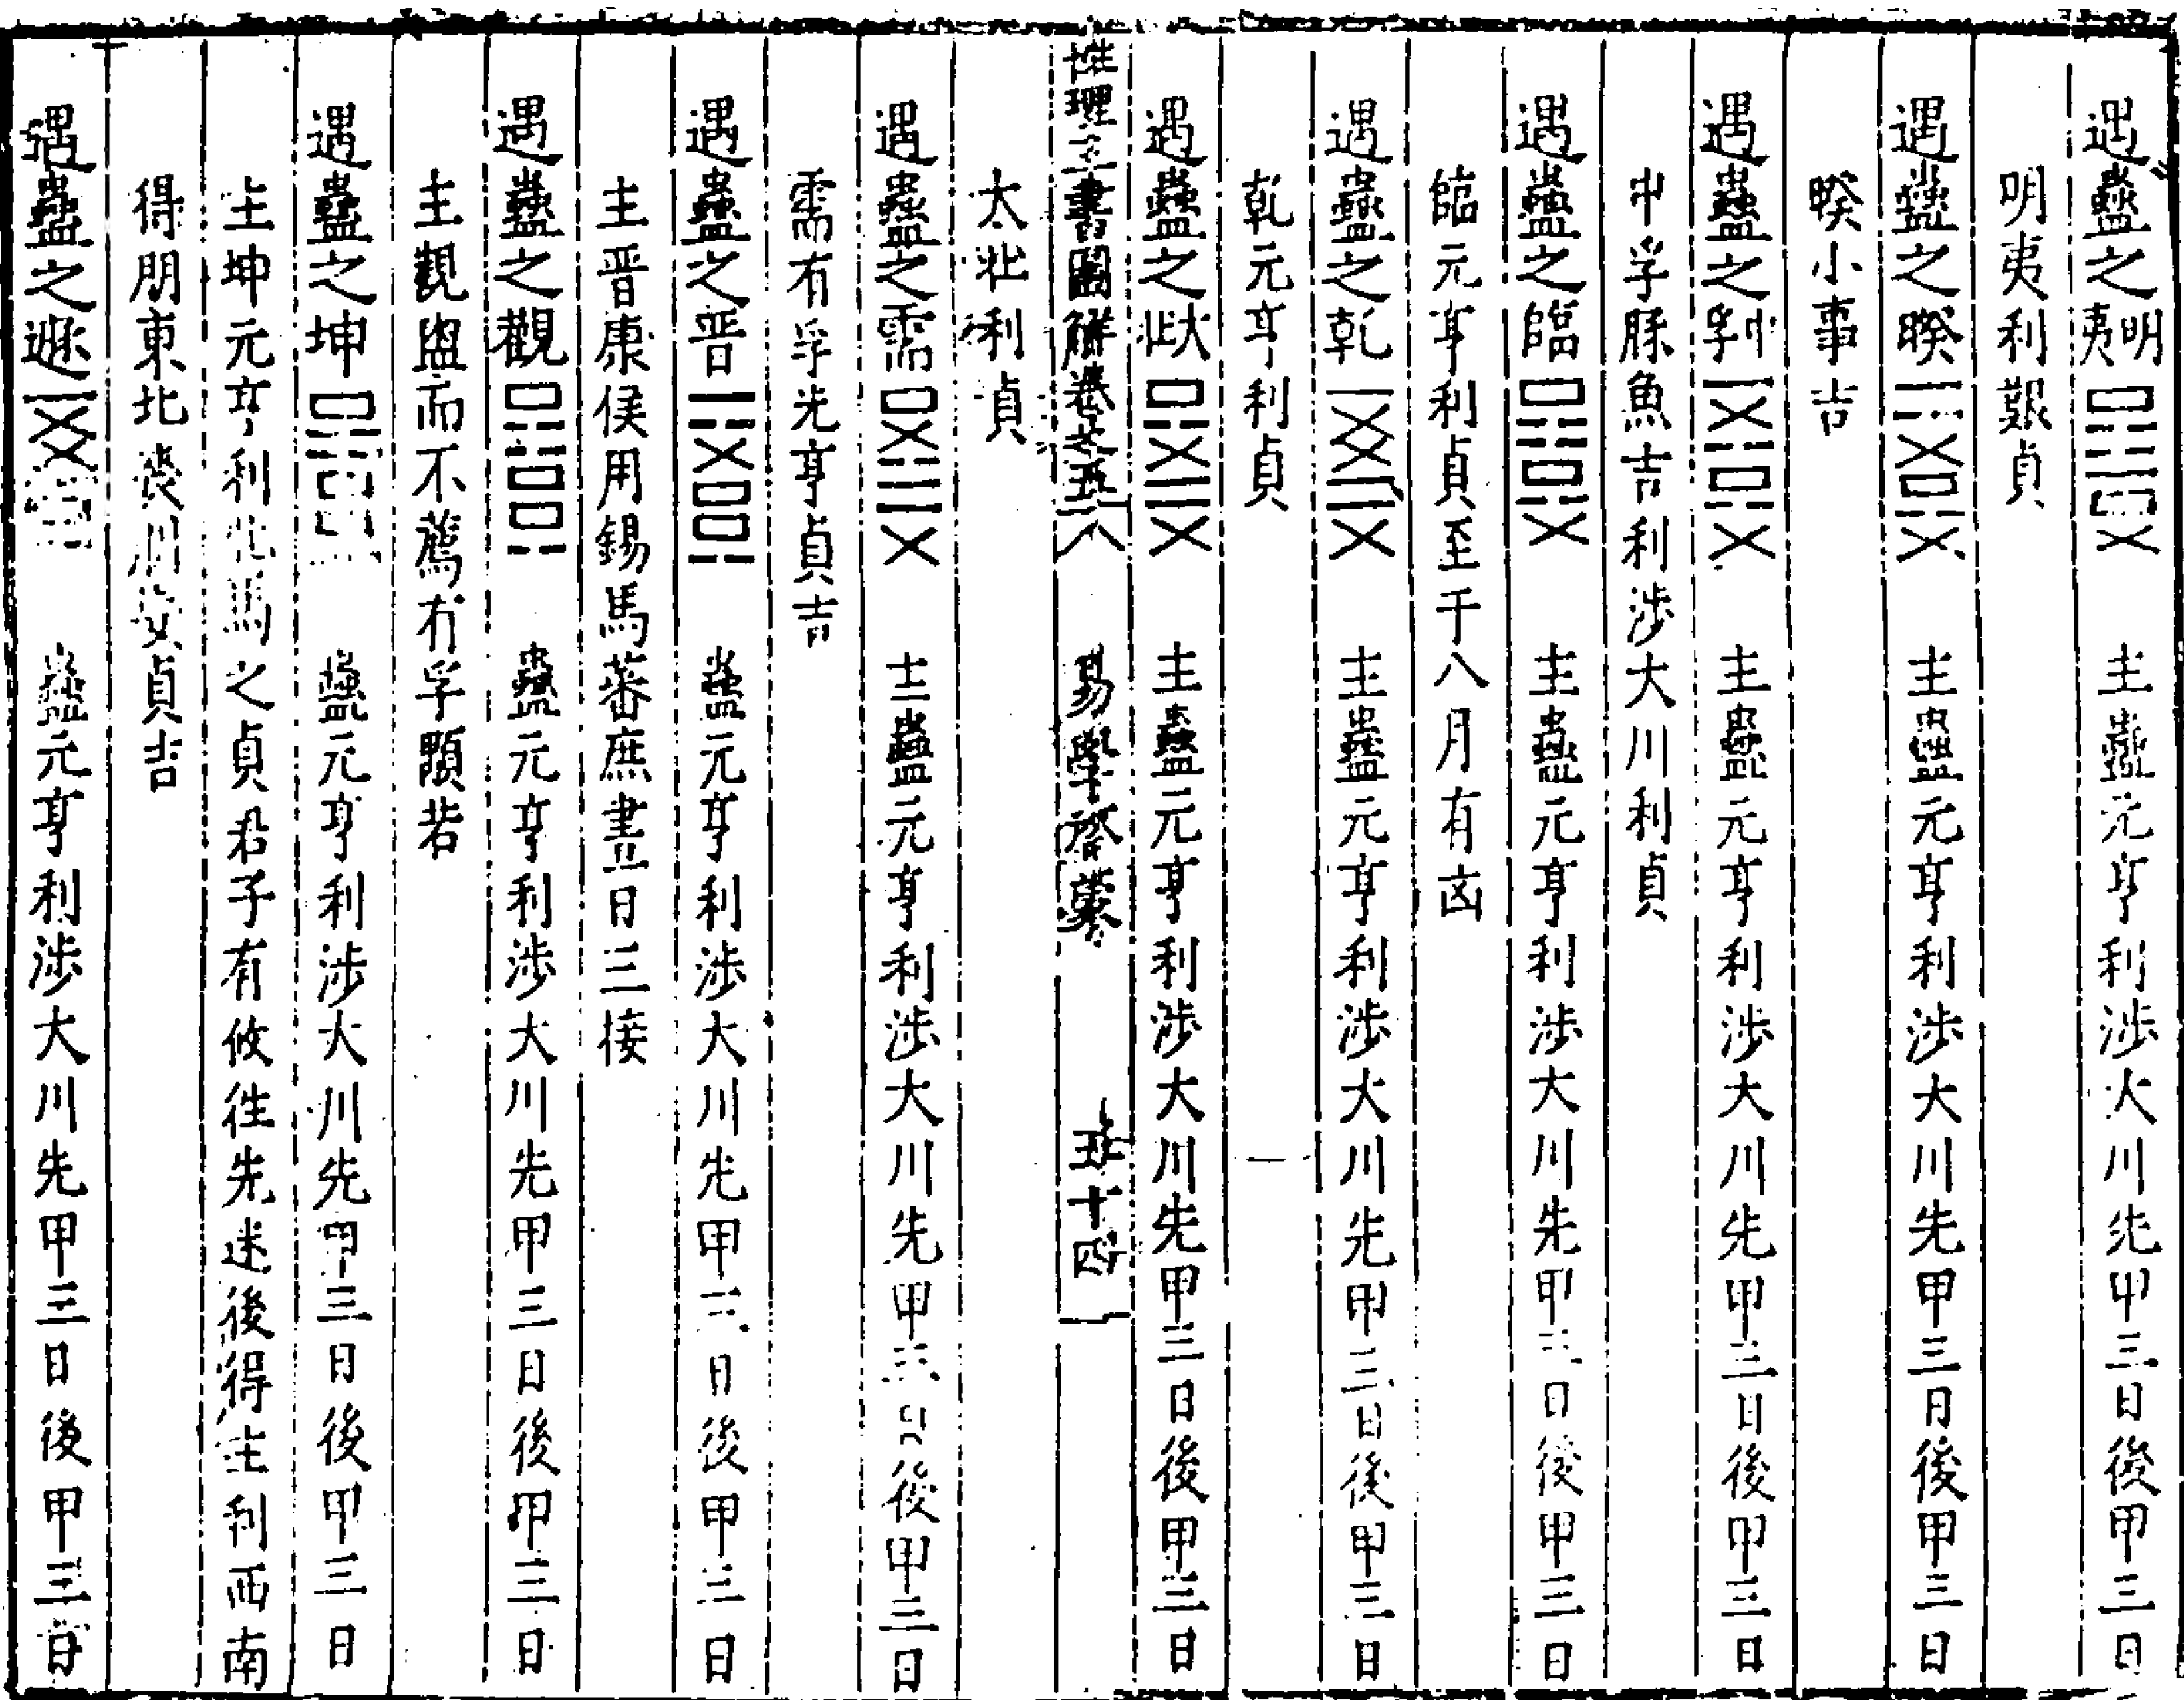 遇蠱之明夷 主蠱元亨利渉大川先甲三日後甲三日
明夷利艱貞
遇蠱之睽 主蠱元亨利渉大川先甲三日後甲三日
睽小事吉
遇蠱之中孚 主蠱元亨利渉大川先甲三日後甲三日
中孚豚魚吉利渉大川利貞
遇蠱之臨 主蠱元亨利渉大川先甲三日後甲三日
臨元亨利貞至于八月有凶
遇蠱之乾 主蠱元亨利渉大川先甲三日後甲三日
乾元亨利貞
遇蠱之大壯 主蠱元亨利渉大川先甲三日後甲三日
性理 書圖解卷之五 易學啓蒙 五十四
大壯利貞
遇蠱之需 主蠱元亨利渉大川先甲三日後甲三日
需有孚光亨貞吉
遇蠱之晋 蠱元亨利渉大川先甲三日後甲三日
主晋康侯用錫馬蕃庶晝日三接
遇蠱之觀 蠱元亨利渉大川先甲三日後甲三日
主觀盥而不薦有孚顒若
遇蠱之坤 蠱元亨利渉大川先甲三日後甲三日
主坤元亨利牝馬之貞君子有攸往先迷後得主利西南
得朋東北喪朋安貞吉
遇蠱之遯 蠱元亨利渉大川先甲三日後甲三日